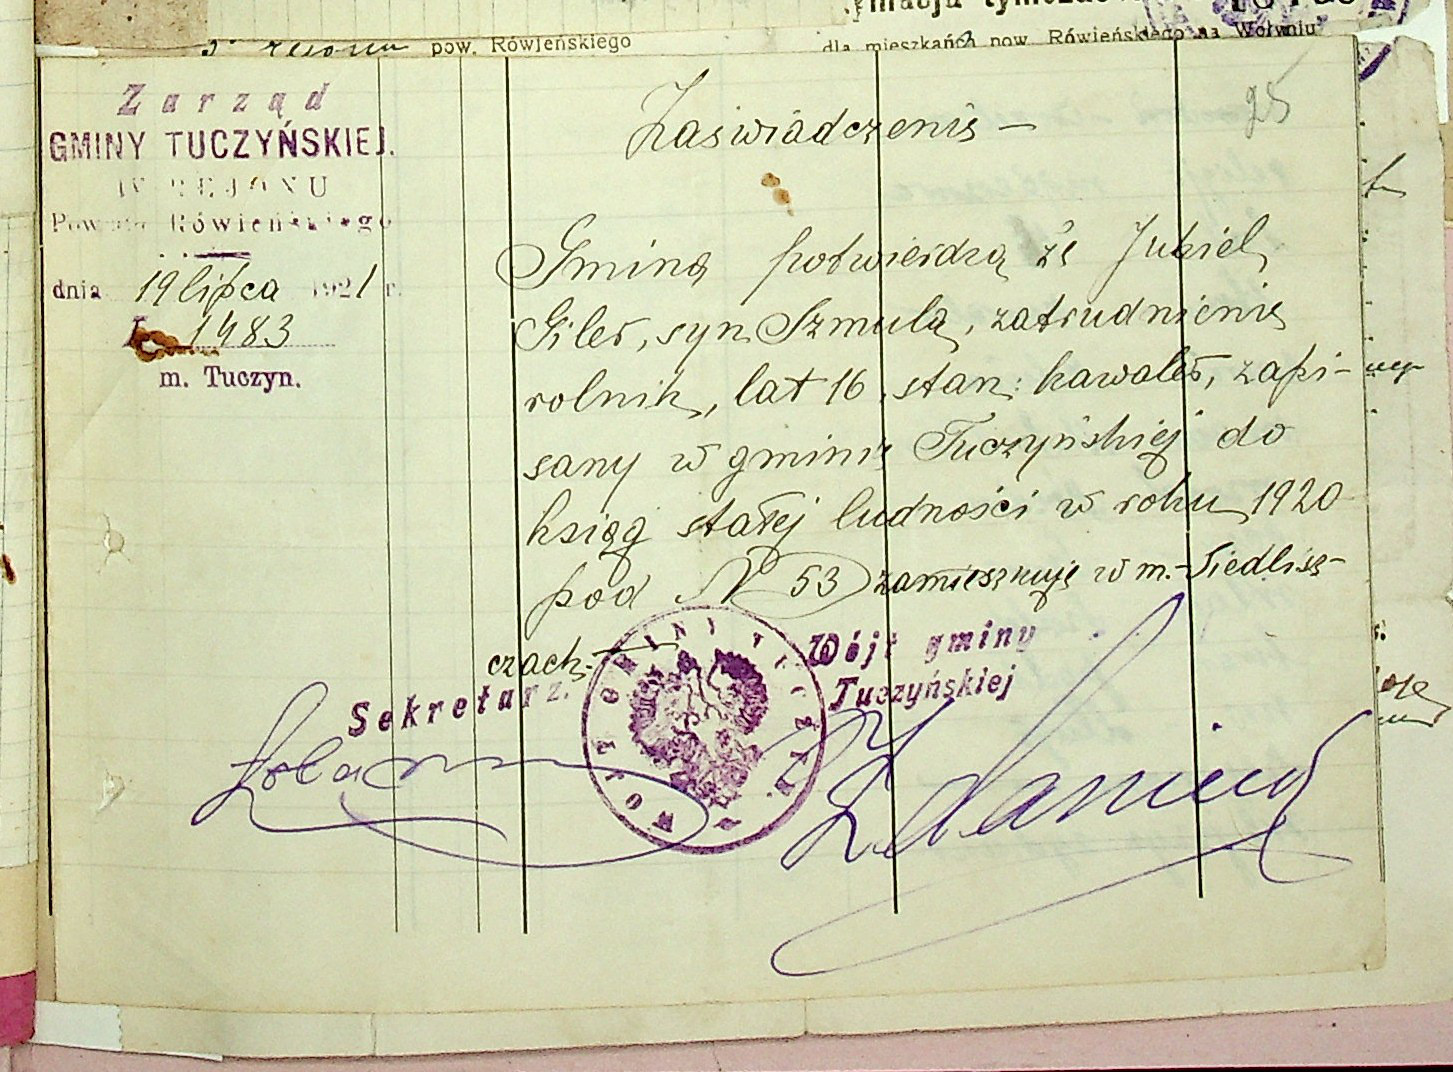 pow. Rówieńskiego
dla mieszkańca pow. Rówieńskiego na Wołyniu
25
Zarząd
GMINY TUCZYŃSKIEJ.
IV REJONU
Powiatu Rówieńskiego
dnia 19 lipca 1921 r.
1483
m. Tuczyn.
Zaświadczenie —
Gmina potwierdza że Jukiel
Giler, syn Szmula, zatrudnienie
rolnik, lat 16, stan: kawaler, zapi-
sany w gminie Tuczyńskiej do
ksiąg stałej ludności w roku 1920
pod N 53 zamieszkuje w m. Siedlisz-
czach.
Sekretarz.
Wójt gminy
Tuczyńskiej
WÓJT GMINY TUCZYN.